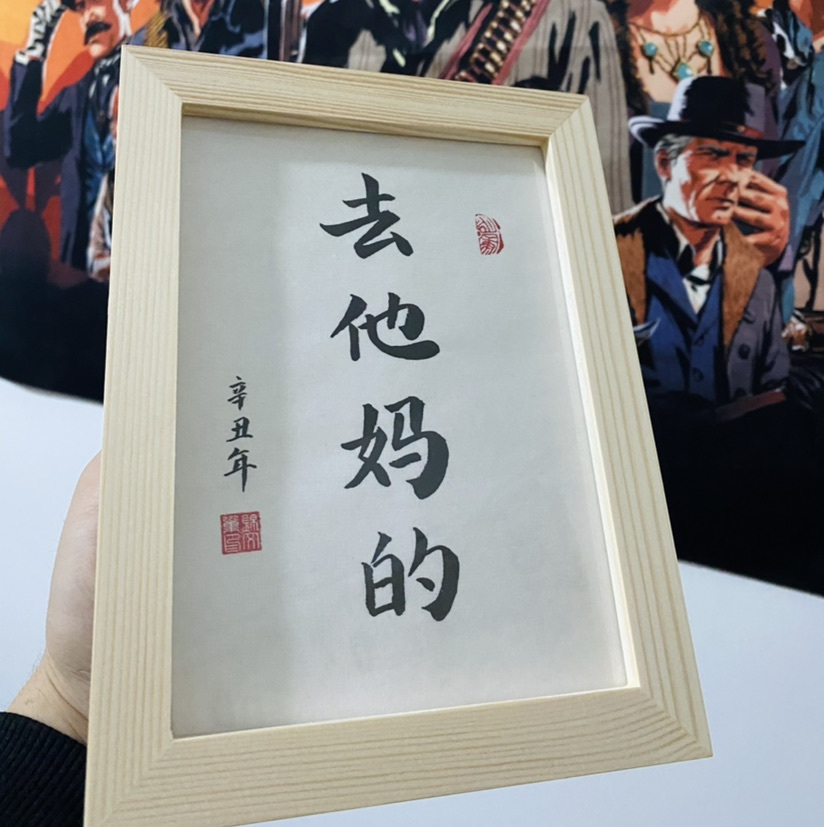 去他妈的
辛丑年